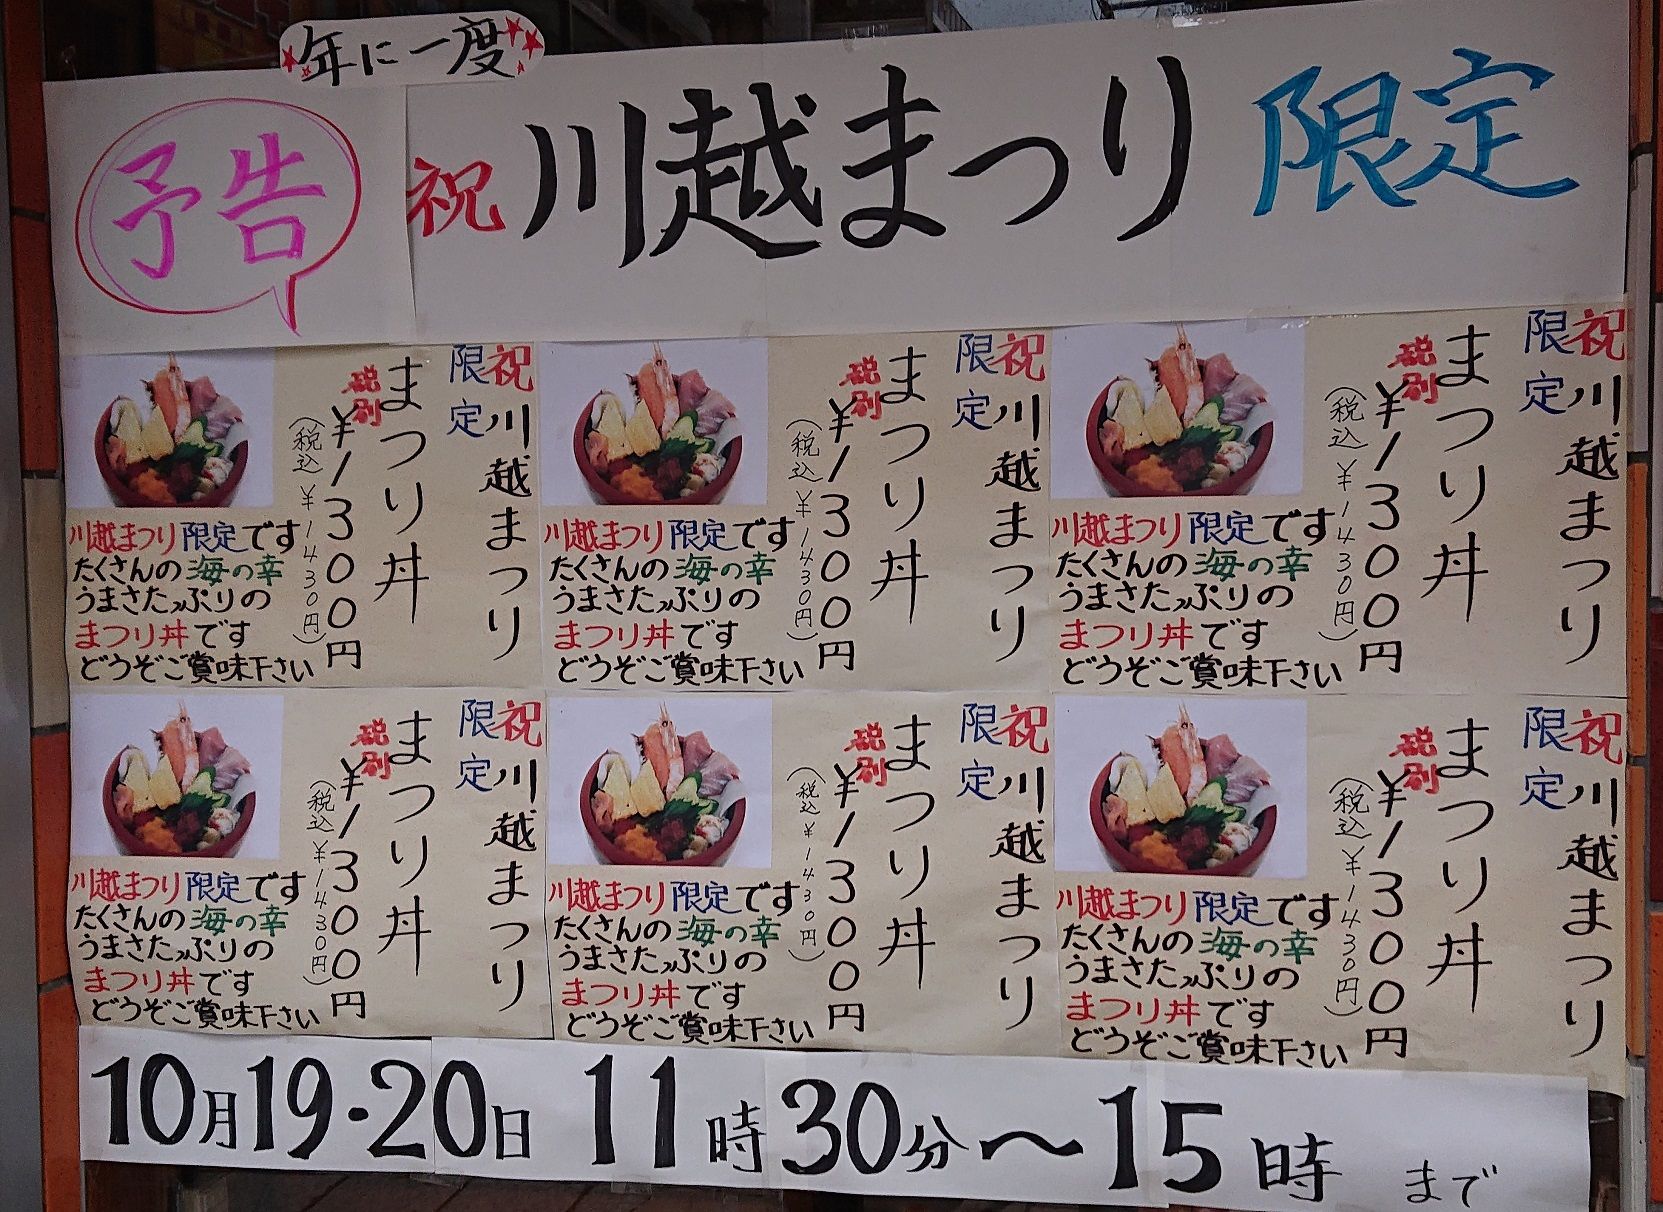 年に一度
予告
祝川越まつり限定
祝川越まつり
限定
まつり丼
税別
¥1300円
(税込¥1430円)
川越まつり限定です
たくさんの海の幸
うまさたっぷりの
まつり丼です
どうぞご賞味下さい
祝川越まつり
限定
まつり丼
税別
¥1300円
(税込¥1430円)
川越まつり限定です
たくさんの海の幸
うまさたっぷりの
まつり丼です
どうぞご賞味下さい
祝川越まつり
限定
まつり丼
税別
¥1300円
(税込¥1430円)
川越まつり限定です
たくさんの海の幸
うまさたっぷりの
まつり丼です
どうぞご賞味下さい
祝川越まつり
限定
まつり丼
税別
¥1300円
(税込¥1430円)
川越まつり限定です
たくさんの海の幸
うまさたっぷりの
まつり丼です
どうぞご賞味下さい
祝川越まつり
限定
まつり丼
税別
¥1300円
(税込¥1430円)
川越まつり限定です
たくさんの海の幸
うまさたっぷりの
まつり丼です
どうぞご賞味下さい
祝川越まつり
限定
まつり丼
税別
¥1300円
(税込¥1430円)
川越まつり限定です
たくさんの海の幸
うまさたっぷりの
まつり丼です
どうぞご賞味下さい
10月19・20日 11時30分〜15時まで